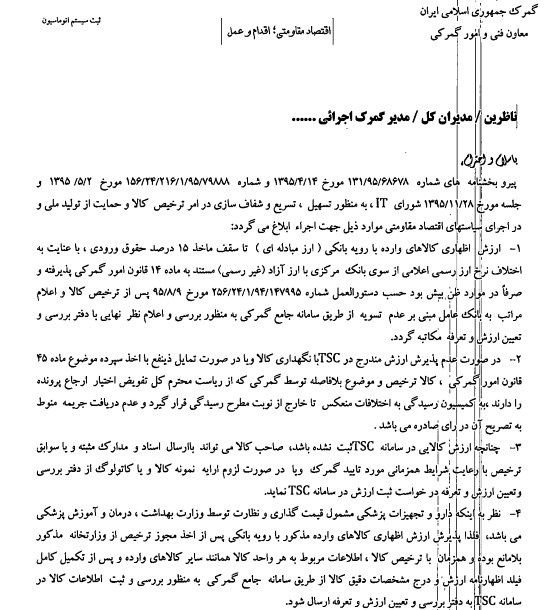 گمرک جمهوری اسلامی ایران
معاون فنی و امور گمرکی
اقتصاد مقاومتی؛ اقدام و عمل
ثبت سیستم اتوماسیون
ناظرین / مدیران کل / مدیر گمرک اجرائی ......
باسلام و احترام
پیرو بخشنامه های شماره ۱۳۱/۹۵/۶۸۶۷۸ مورخ ۱۳۹۵/۴/۱۴ و شماره ۱۵۶/۲۴/۲۱۶/۱/۹۵/۷۹۸۸۸ مورخ ۱۳۹۵ /۵/۲ و
جلسه مورخ ۱۳۹۵/۱۱/۲۸ شورای IT ، به منظور تسهیل ، تسریع و شفاف سازی در امر ترخیص کالا و حمایت از تولید ملی و
در اجرای سیاستهای اقتصاد مقاومتی موارد ذیل جهت اجراء ابلاغ می گردد:
۱- ارزش اظهاری کالاهای وارده با رویه بانکی ( ارز مبادله ای ) تا سقف ماخذ ۱۵ درصد حقوق ورودی ، با عنایت به
اختلاف نرخ ارز رسمی اعلامی از سوی بانک مرکزی با ارز آزاد (غیر رسمی) مستند به ماده ۱۴ قانون امور گمرکی پذیرفته و
صرفاً در موارد ظن بیش بود حسب دستورالعمل شماره ۲۵۶/۲۴/۱/۹۴/۱۴۷۹۹۵ مورخ ۹۵/۸/۹ پس از ترخیص کالا و اعلام
مراتب به بانک عامل مبنی بر عدم تسویه از طریق سامانه جامع گمرکی به منظور بررسی و اعلام نظر نهایی با دفتر بررسی و
تعیین ارزش و تعرفه مکاتبه گردد.
۲- در صورت عدم پذیرش ارزش مندرج در TSCبا نگهداری کالا ویا در صورت تمایل ذینفع با اخذ سپرده موضوع ماده ۴۵
قانون امور گمرکی ، کالا ترخیص و موضوع بلافاصله توسط گمرکی که از ریاست محترم کل تفویض اختیار ارجاع پرونده
را دارند ،به کمیسیون رسیدگی به اختلافات منعکس تا خارج از نوبت مطرح رسیدگی قرار گیرد و عدم دریافت جریمه منوط
به تصریح آن در رای صادره می باشد .
۳- چنانچه ارزش کالایی در سامانه TSCثبت نشده باشد، صاحب کالا می تواند باارسال اسناد و مدارک مثبته و یا سوابق
ترخیص با رعایت شرایط همزمانی مورد تایید گمرک ویا در صورت لزوم ارایه نمونه کالا و یا کاتولوگ از دفتر بررسی
وتعیین ارزش و تعرفه در خواست ثبت ارزش در سامانه TSC نماید.
۴- نظر به اینکه دارو و تجهیزات پزشکی مشمول قیمت گذاری و نظارت توسط وزارت بهداشت ، درمان و آموزش پزشکی
می باشد، فلذا پذیرش ارزش اظهاری کالاهای وارده مذکور با رویه بانکی پس از اخذ مجوز ترخیص از وزارتخانه مذکور
بلامانع بوده و همزمان با ترخیص کالا ، اطلاعات مربوط به هر واحد کالا همانند سایر کالاهای وارده و پس از تکمیل کامل
فیلد اظهارنامه ارزش و درج مشخصات دقیق کالا از طریق سامانه جامع گمرکی به منظور بررسی و ثبت اطلاعات کالا در
سامانه TSC به دفتر بررسی و تعیین ارزش و تعرفه ارسال شود.